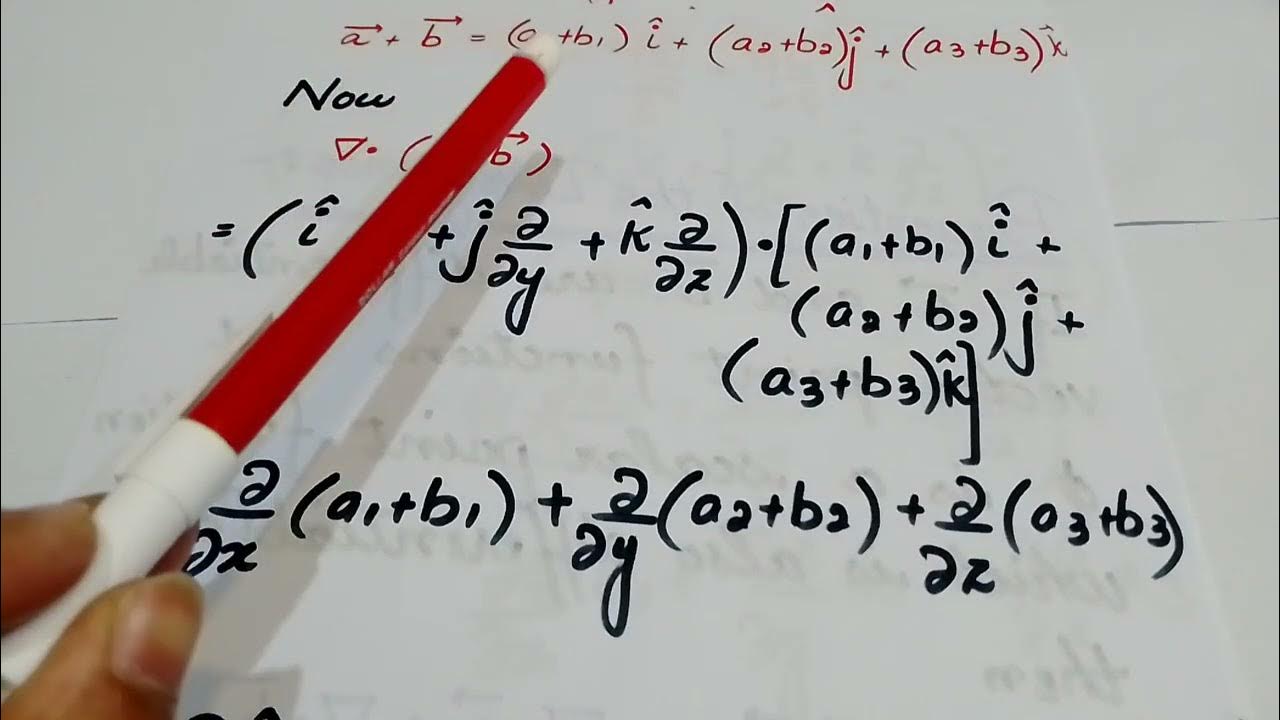 a⃗ + b⃗ = (a +b₁) î + (a₂+b₂)ĵ + (a₃+b₃)k̂
Now
∇· ( b⃗ )
= ( î + ĵ ∂/∂y + k̂ ∂/∂z ) · [(a₁+b₁) î +
(a₂+b₂) ĵ +
(a₃+b₃) k̂]
∂/∂x (a₁+b₁) + ∂/∂y (a₂+b₂) + ∂/∂z (a₃+b₃)